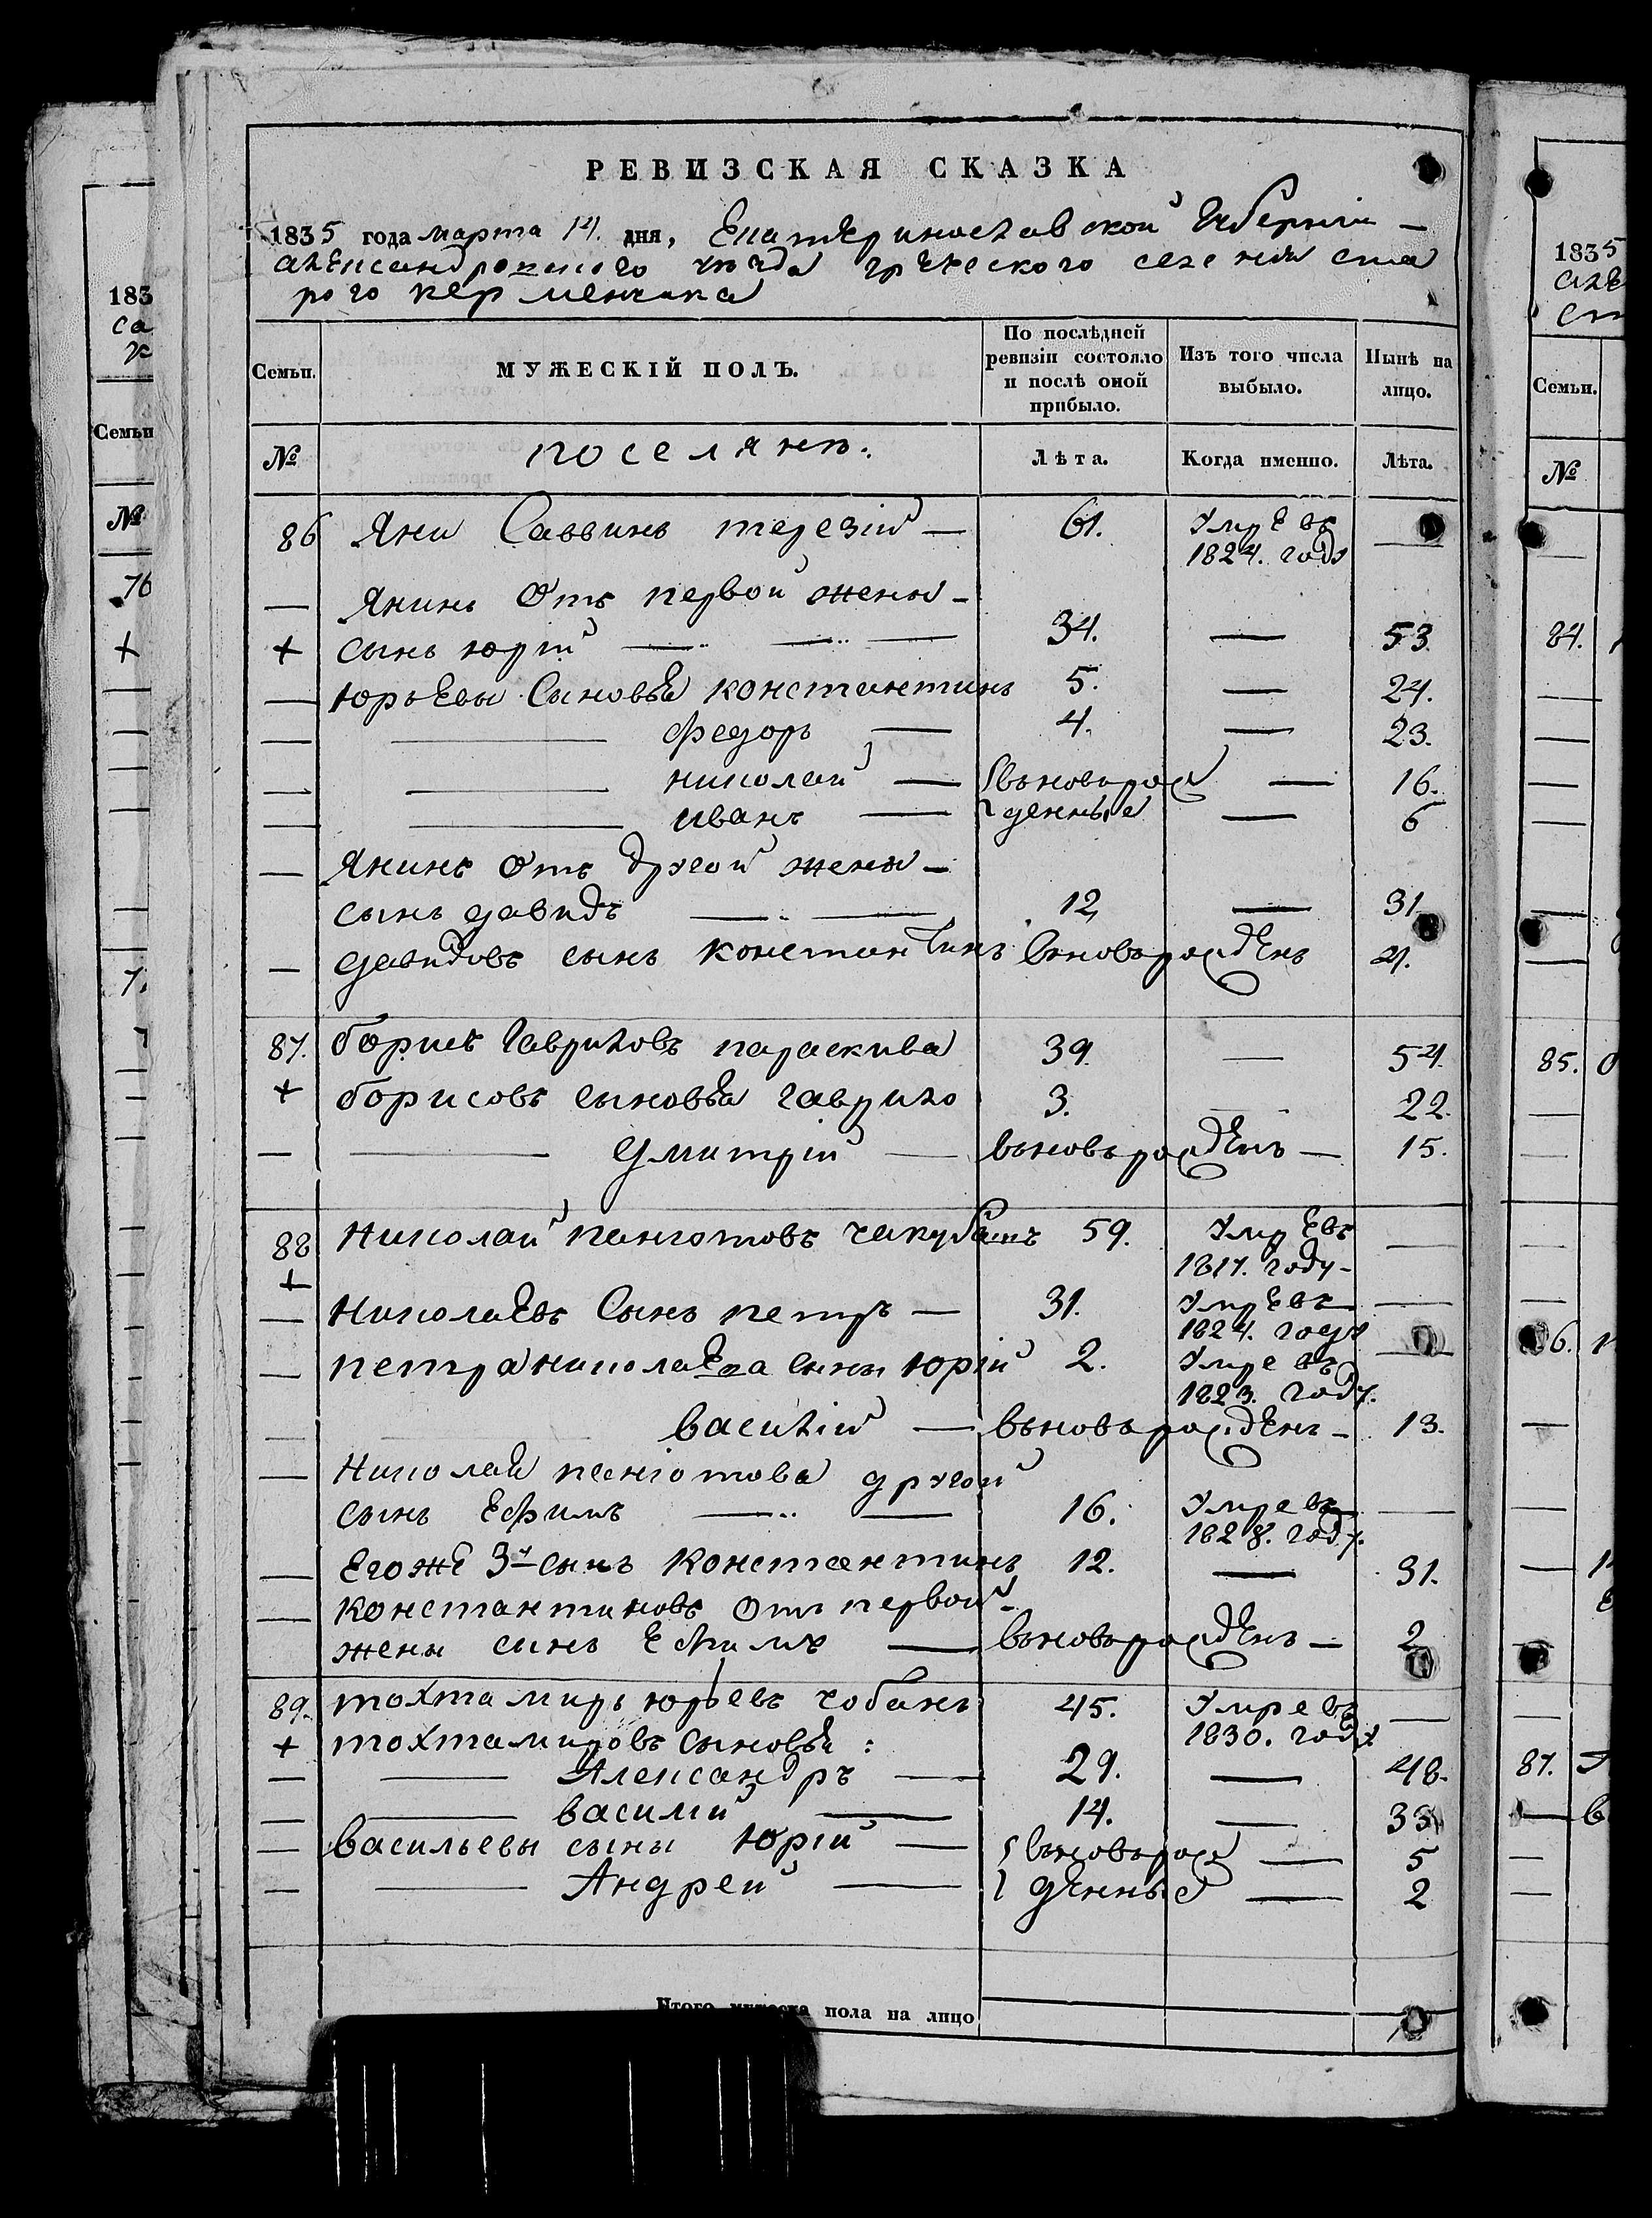 РЕВИЗСКАЯ СКАЗКА
1835 года марта 14. дня, Екатеринославской Губернiи
александровскаго уѣзда греческого селенiя ста
рого керменчика
Семьи.
МУЖЕСКIЙ ПОЛЪ.
По послѣдней ревизiи состояло и послѣ оной прибыло.
Изъ того числа выбыло.
Нынѣ на лицо.
№ поселянъ. Лѣта. Когда именно. Лѣта.
86 Яни Саввинъ терезiй — 61. Умре въ 1824. году —
— Янинъ Отъ первой жены —
+ сынъ юрiй — 34. — 53.
— Юрьевы Сыновья константинъ 5. — 24.
— федоръ — 4. — 23.
— николай — вьноворож — 16.
— иванъ — денные — 6
— Янинъ Отъ другой жены —
сынъ давидъ — 12, — 31.
— давидовъ сынъ константинъ вновьрожденъ 4.
87. борисъ Гавриловъ параскива 39. — 54.
+ борисовъ сыновья гаврило 3. — 22.
— дмитрiй — вьновьрожденъ — 15.
88 Николай панiотовъ 59. Умре въ 1817. году — —
+
— Николаевъ Сынъ петръ — 31. Умре въ 1824. году —
— петра николаева сыны юрiй 2. Умре въ 1823. году. —
— василiй — вьновьрожденъ — 13.
— Николая панiотова другой
сынъ Ефимъ — 16. Умре въ 1828. году. —
— Егоже 3й сынъ Константинъ 12. — 31.
— константиновъ Отъ первой
жены синъ Ефимъ — вьновьрожденъ — 2
89. тохтамиръ юрьевъ чобанъ 45. Умре въ 1830. году —
+ тохтамировъ сыновья :
— Александръ — 29. — 48.
— василiй — 14. — 33
— васильевы сыны Юрiй — вьноворож — 5
— Андрей — денные — 2
Итого мужеска пола на лицо
183
са
Семьи
№
76
+
1835
Семьи.
№
84.
85.
6.
87.